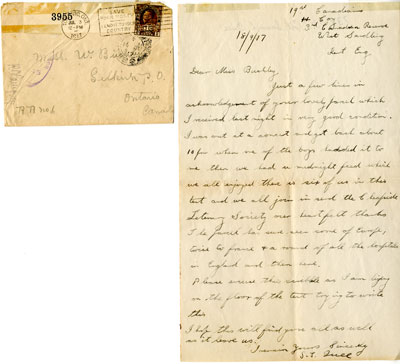 3955
SAVE
Miss W. Buckley
P.O.
Ontario
Canada
R R No 1
19th Canadians
H Coy
3rd Canadian Reserve
West Sandling
Kent Eng
15/9/17
Dear Miss Buckley,
Just a few lines in
acknowledgement of your lovely parcel which
I received last night in very good condition.
I was out at a concert and got back about
10 pm when one of the boys handed it to
me then we had a midnight feed which
we all enjoyed there is six of us in this
tent and we all join in send the
Literary Society our heartfelt thanks
The parcel has and seen some of
twice to france & a round of all the hospitals
in England and then here.
Please excuse this as I am lying
on the floor of the tent trying to write
this.
I hope this will find you all as well
as it leaves us.
I remain Yours Sincerely